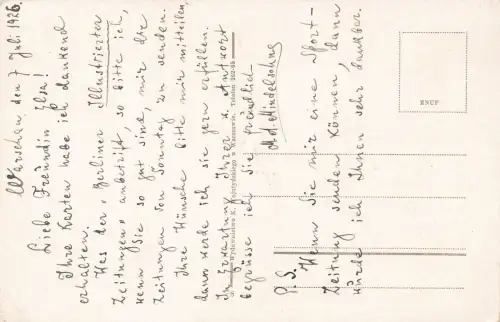 Warschau, den 7 Juli 1926.
Liebe Freundin Elsa!
Ihre Karten habe ich dankend
erhalten.
Was der "Berliner Illustrierter
Zeitungen" anbetrifft, so bitte ich,
wenn Sie so gut sind, mir die
Zeitungen von Sonntag zu senden.
Ihre Wünsche bitte mir mitteilen,
dann werde ich sie gern erfüllen.
In Erwartung Ihrer w. Antwort
begrüsse ich Sie freundlich
M. Mindelsohn
P.S. Wenn Sie mir eine Sport-
Zeitung senden können, dann
würde ich Ihnen sehr dankbar.
Wydawnictwo K. Wojutyńskiego w Warszawie. Telefon
ENUF